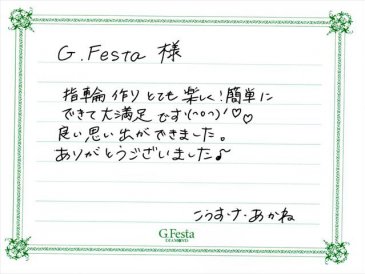 G.Festa 様
指輪作りとても楽しく!簡単に
できて大満足です(^o^)'♡♡
良い思い出ができました。
ありがとうございました♪
こうすけ・あかね
G.Festa
DIAMOND